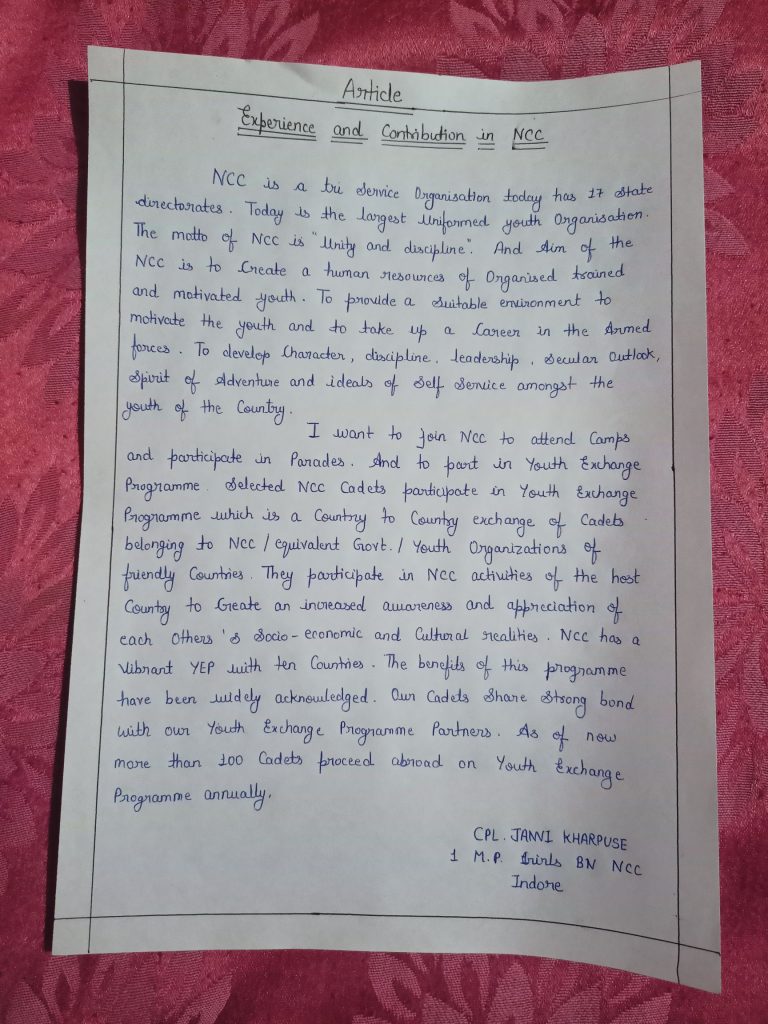 Article
Experience and Contribution in NCC
NCC is a tri Service Organisation today has 17 State
directorates. Today is the largest Uniformed youth Organisation.
The motto of NCC is "Unity and discipline". And Aim of the
NCC is to Create a human resources of Organised trained
and motivated youth. To provide a Suitable environment to
motivate the youth and to take up a Career in the Armed
forces. To develop Character, discipline, leadership, Secular Outlook,
Spirit of Adventure and ideals of Self Service amongst the
youth of the Country.
I want to join NCC to attend Camps
and participate in Parades. And to part in Youth Exchange
Programme. Selected NCC Cadets participate in Youth Exchange
Programme which is a Country to Country exchange of Cadets
belonging to NCC / equivalent Govt. / Youth Organizations of
friendly Countries. They participate in NCC activities of the host
Country to Create an increased awareness and appreciation of
each Others's Socio-economic and Cultural realities. NCC has a
Vibrant YEP with ten Countries. The benefits of this programme
have been widely acknowledged. Our Cadets Share Strong bond
with our Youth Exchange Programme Partners. As of now
more than 100 Cadets proceed abroad on Youth Exchange
Programme annually.
CPL. JANVI KHARPUSE
1 M.P. Girls BN NCC
Indore